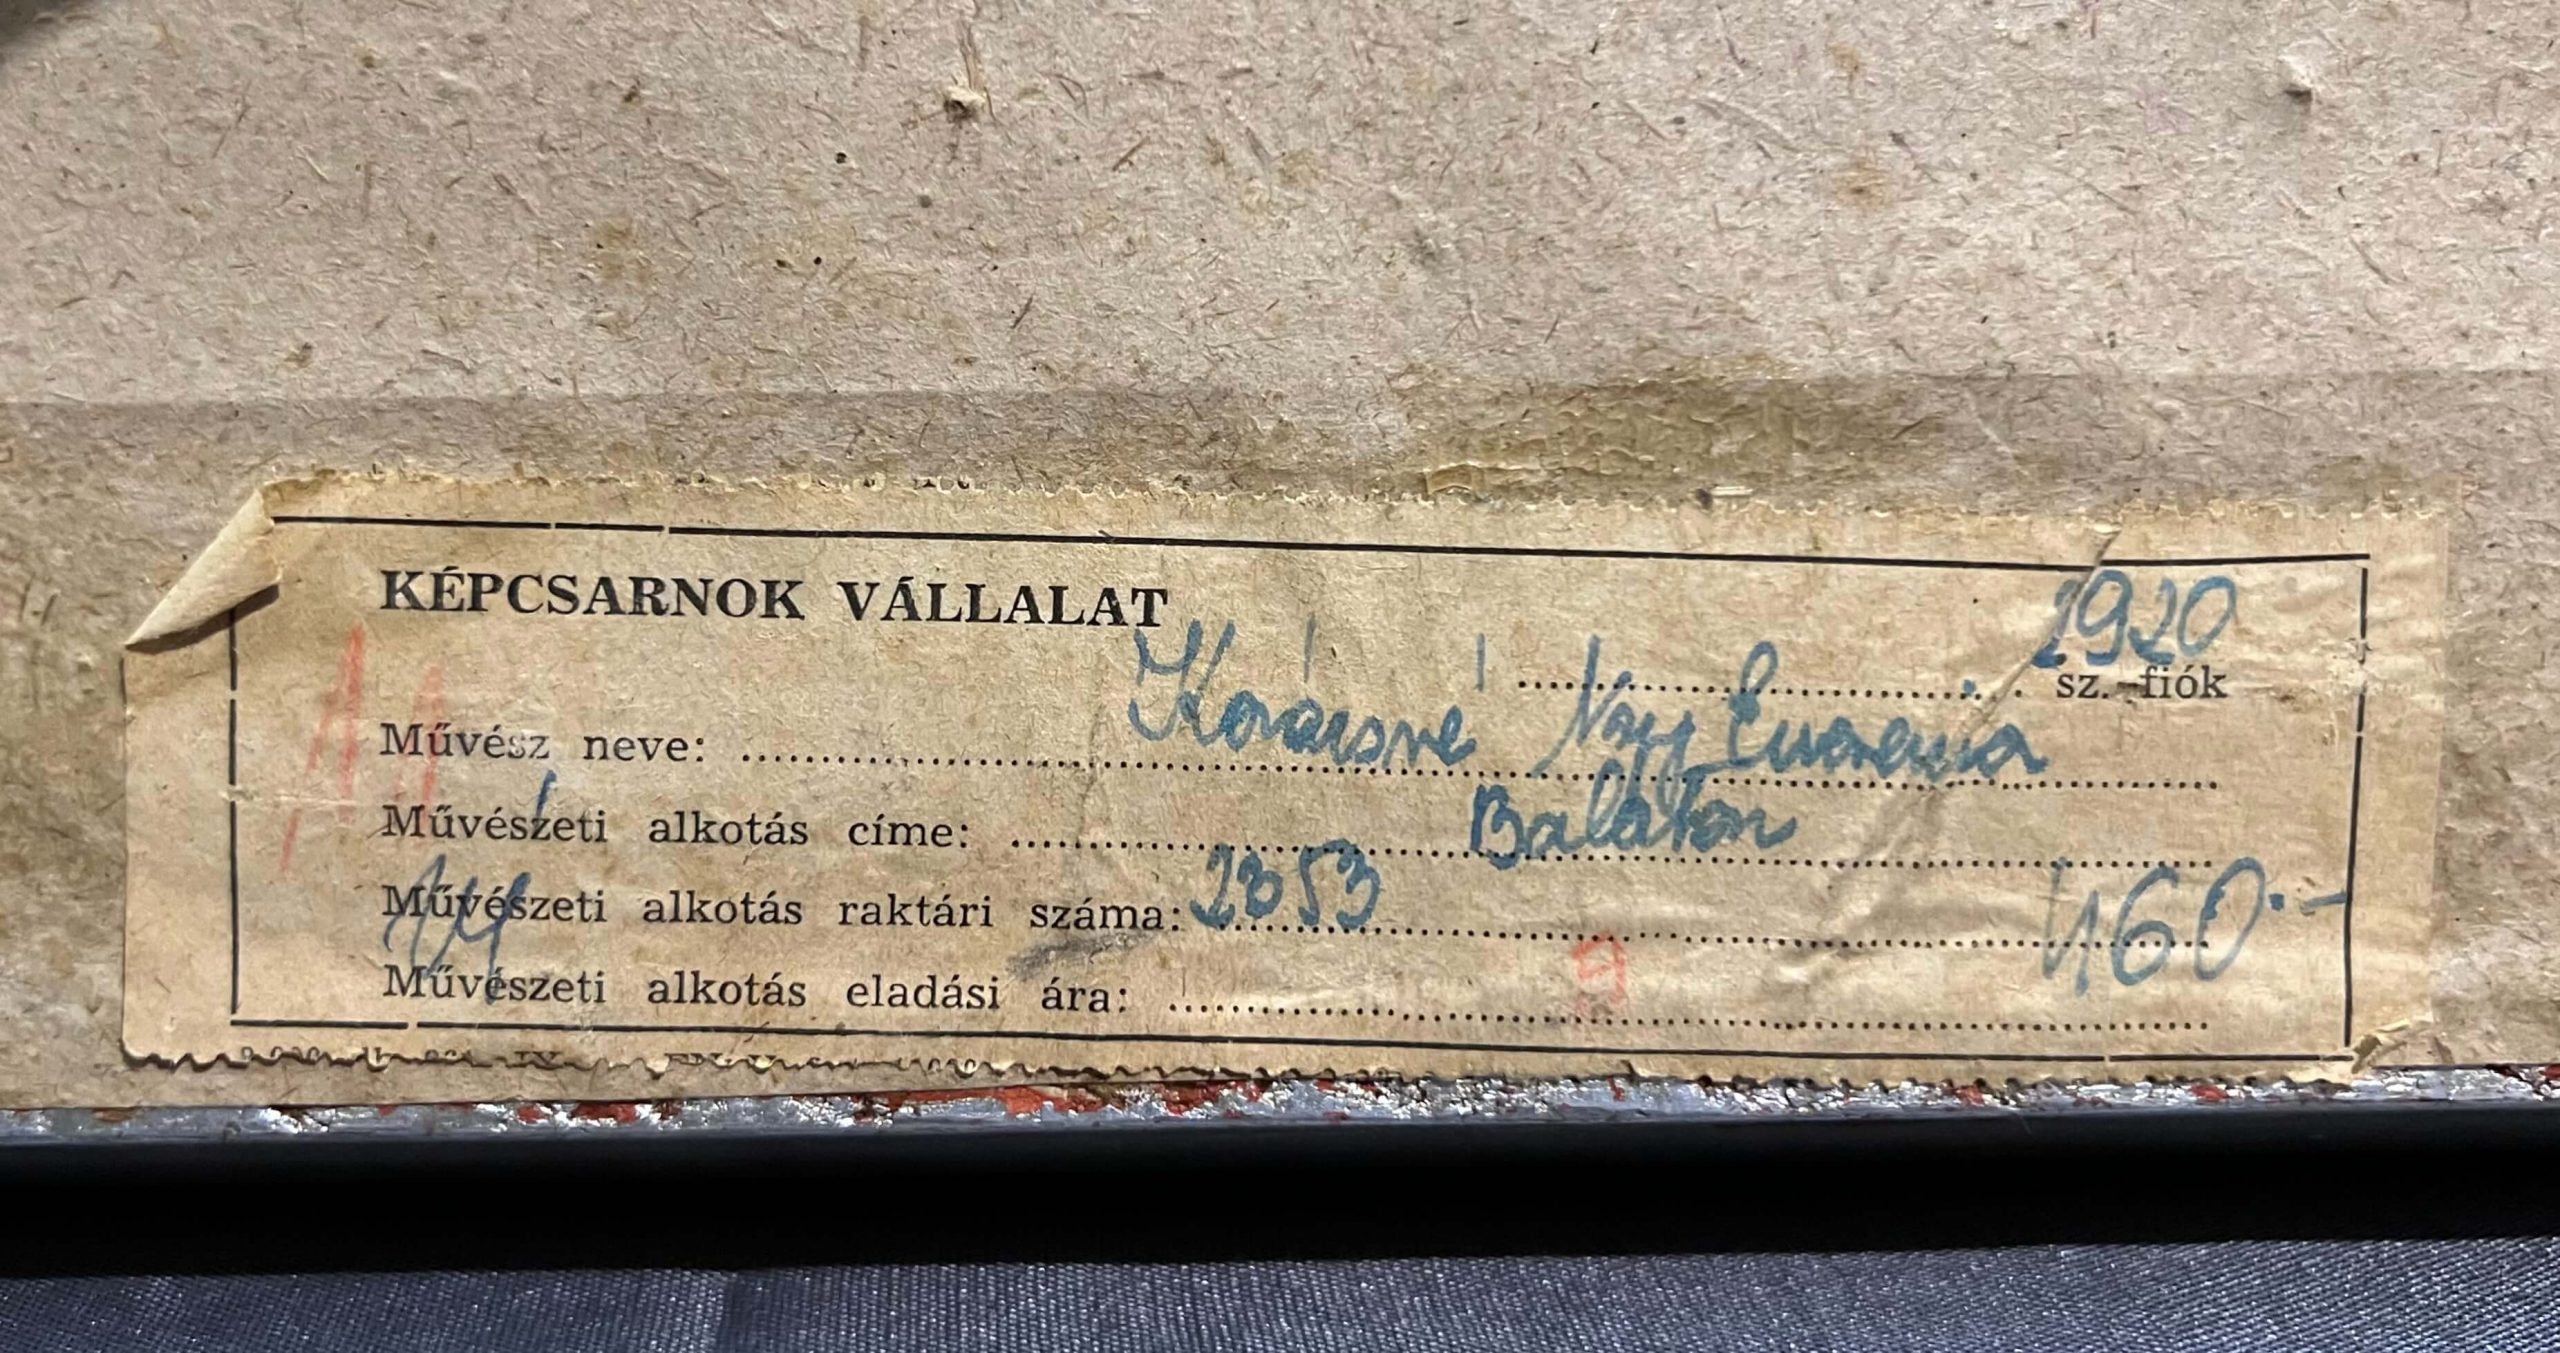 KÉPCSARNOK VÁLLALAT
2920
sz. fiók
Művész neve: Kovácsné Nagy Eugenia
Művészeti alkotás címe: Balaton
Művészeti alkotás raktári száma: 2353
160.-
Művészeti alkotás eladási ára:
9